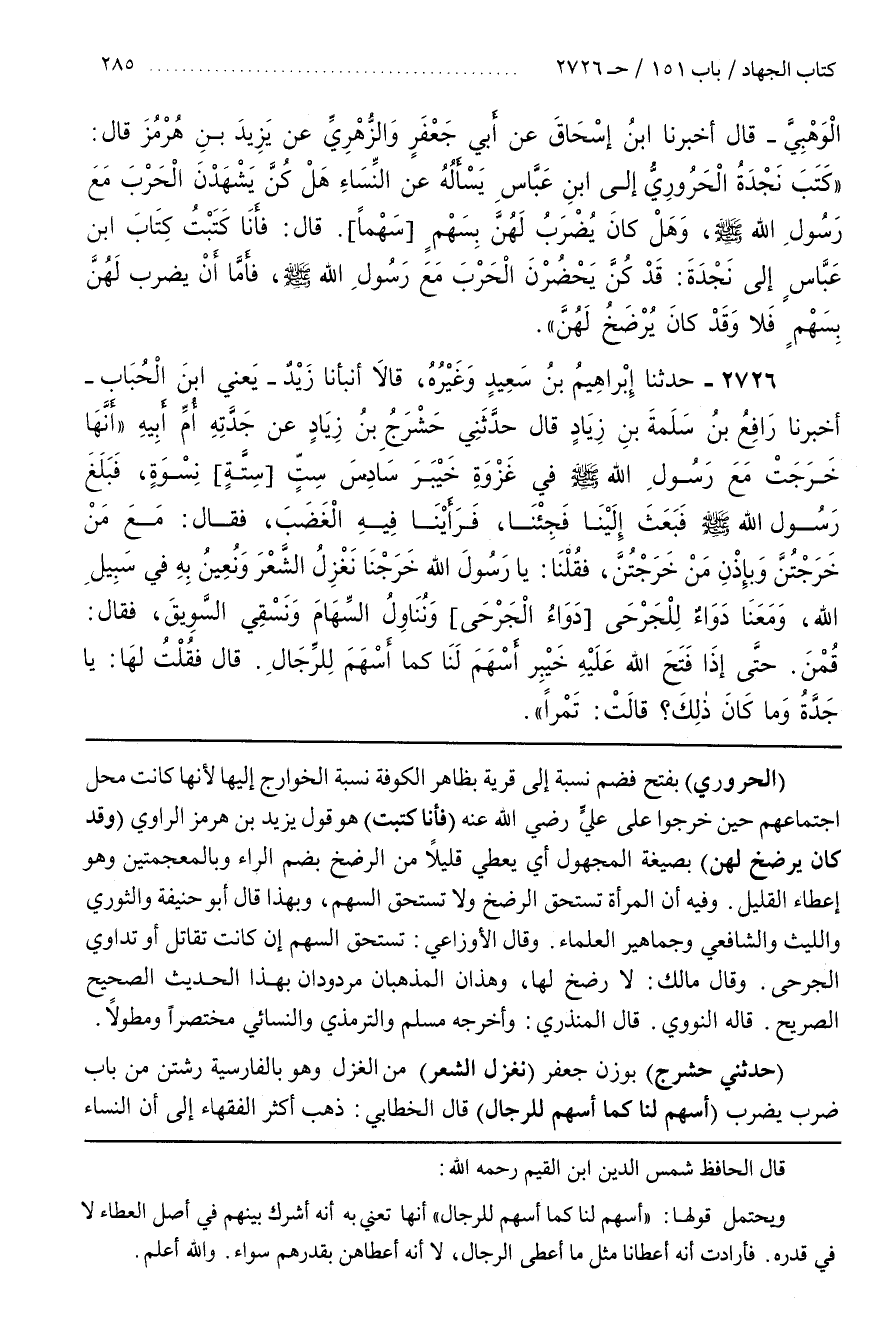 كتاب الجهاد / باب ١٥١ / حـ ٢٧٢٦ ............................................ ٢٨٥
الْوَهْبِيَّ - قال أخبرنا ابنُ إسْحَاقَ عن أَبي جَعْفَرٍ وَالزُّهْرِيِّ عن يَزِيدَ بـنِ هُرْمُزَ قال:
«كَتَبَ نَجْدَةُ الْحَرُورِيُّ إلـى ابنِ عَبَّاسٍ يَسْأَلُهُ عن النِّسَاءِ هَلْ كُنَّ يَشْهَدْنَ الْحَرْبَ مَعَ
رَسُولِ الله ﷺ، وَهَلْ كانَ يُضْرَبُ لَهُنَّ بِسَهْمٍ [سَهْماً]. قال: فأنَا كَتَبْتُ كِتَابَ ابن
عَبَّاسٍ إلى نَجْدَةَ: قَدْ كُنَّ يَحْضُرْنَ الْحَرْبَ مَعَ رَسُولِ الله ﷺ، فأمَّا أنْ يضرب لَهُنَّ
بِسَهْمٍ فَلا وَقَدْ كانَ يُرْضَخُ لَهُنَّ».
٢٧٢٦ - حدثنا إبْراهِيمُ بنُ سَعِيدٍ وَغَيْرُهُ، قالَا أنبأنا زَيْدٌ - يَعني ابنَ الْحُبَاب -
أخبرنا رَافِعُ بنُ سَلَمةَ بنِ زِيَادٍ قال حدَّثَنِي حَشْرَجُ بنُ زِيَادٍ عن جَدَّتِهِ أُمِّ أَبِيهِ «أَنَّهَا
خَـرَجَتْ مَعَ رَسُـولِ الله ﷺ في غَزْوَةِ خَيْبَرَ سَادِسَ سِتٍّ [سِتَّـةٍ] نِسْـوَةٍ، فَبَلَغَ
رَسُـول الله ﷺ فَبَعَثَ إلَيْنَـا فَجِئْنَـا، فَـرَأيْنَـا فِيـهِ الْغَضَبَ، فقـال: مَـعَ مَنْ
خَرَجْتُنَّ وَبِإذْنِ مَنْ خَرَجْتُنَّ، فقُلْنَا: يا رَسُولَ الله خَرَجْنَا نَغْزِلُ الشَّعْرَ وَنُعِينُ بِهِ في سَبِيلِ
الله، وَمَعَنَا دَوَاءٌ لِلْجَرْحَى [دَوَاءُ الْجَرْحَى] وَنُنَاوِلُ السِّهَامَ وَنَسْقِي السَّوِيقَ، فقال:
قُمْنَ. حتَّى إذَا فَتَحَ الله عَلَيْهِ خَيْبِر أَسْهَمَ لَنَا كما أَسْهَمَ لِلرِّجَالِ. قال فقُلْتُ لهَا: يا
جَدَّةُ وَما كَانَ ذٰلِكَ؟ قالَتْ: تَمْراً».
(الحروري) بفتح فضم نسبة إلى قرية بظاهر الكوفة نسبة الخوارج إليها لأنها كانت محل
اجتماعهم حين خرجوا على عليٍّ رضي الله عنه (فأنا كتبت) هو قول يزيد بن هرمز الراوي (وقد
كان يرضخ لهن) بصيغة المجهول أي يعطي قليلاً من الرضخ بضم الراء وبالمعجمتين وهو
إعطاء القليل. وفيه أن المرأة تستحق الرضخ ولا تستحق السهم، وبهذا قال أبو حنيفة والثوري
والليث والشافعي وجماهير العلماء. وقال الأوزاعي: تستحق السهم إن كانت تقاتل أو تداوي
الجرحى. وقال مالك: لا رضخ لها، وهذان المذهبان مردودان بهـذا الحـديث الصحيح
الصريح. قاله النووي. قال المنذري: وأخرجه مسلم والترمذي والنسائي مختصراً ومطولاً.
(حدثني حشرج) بوزن جعفر (نغزل الشعر) من الغزل وهو بالفارسية رشتن من باب
ضرب يضرب (أسهم لنا كما أسهم للرجال) قال الخطابي: ذهب أكثر الفقهاء إلى أن النساء
قال الحافظ شمس الدين ابن القيم رحمه الله:
ويحتمل قولهـا: «أسهم لنا كما أسهم للرجال» أنها تعني به أنه أشرك بينهم في أصل العطاء لا
في قدره. فأرادت أنه أعطانا مثل ما أعطى الرجال، لا أنه أعطاهن بقدرهم سواء. والله أعلم.